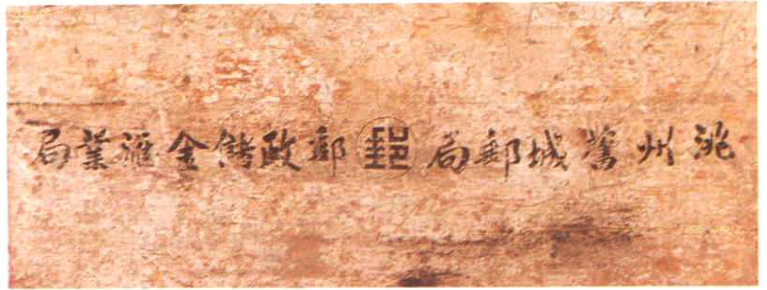 洮州舊城郵局 郵 郵政儲金滙業局